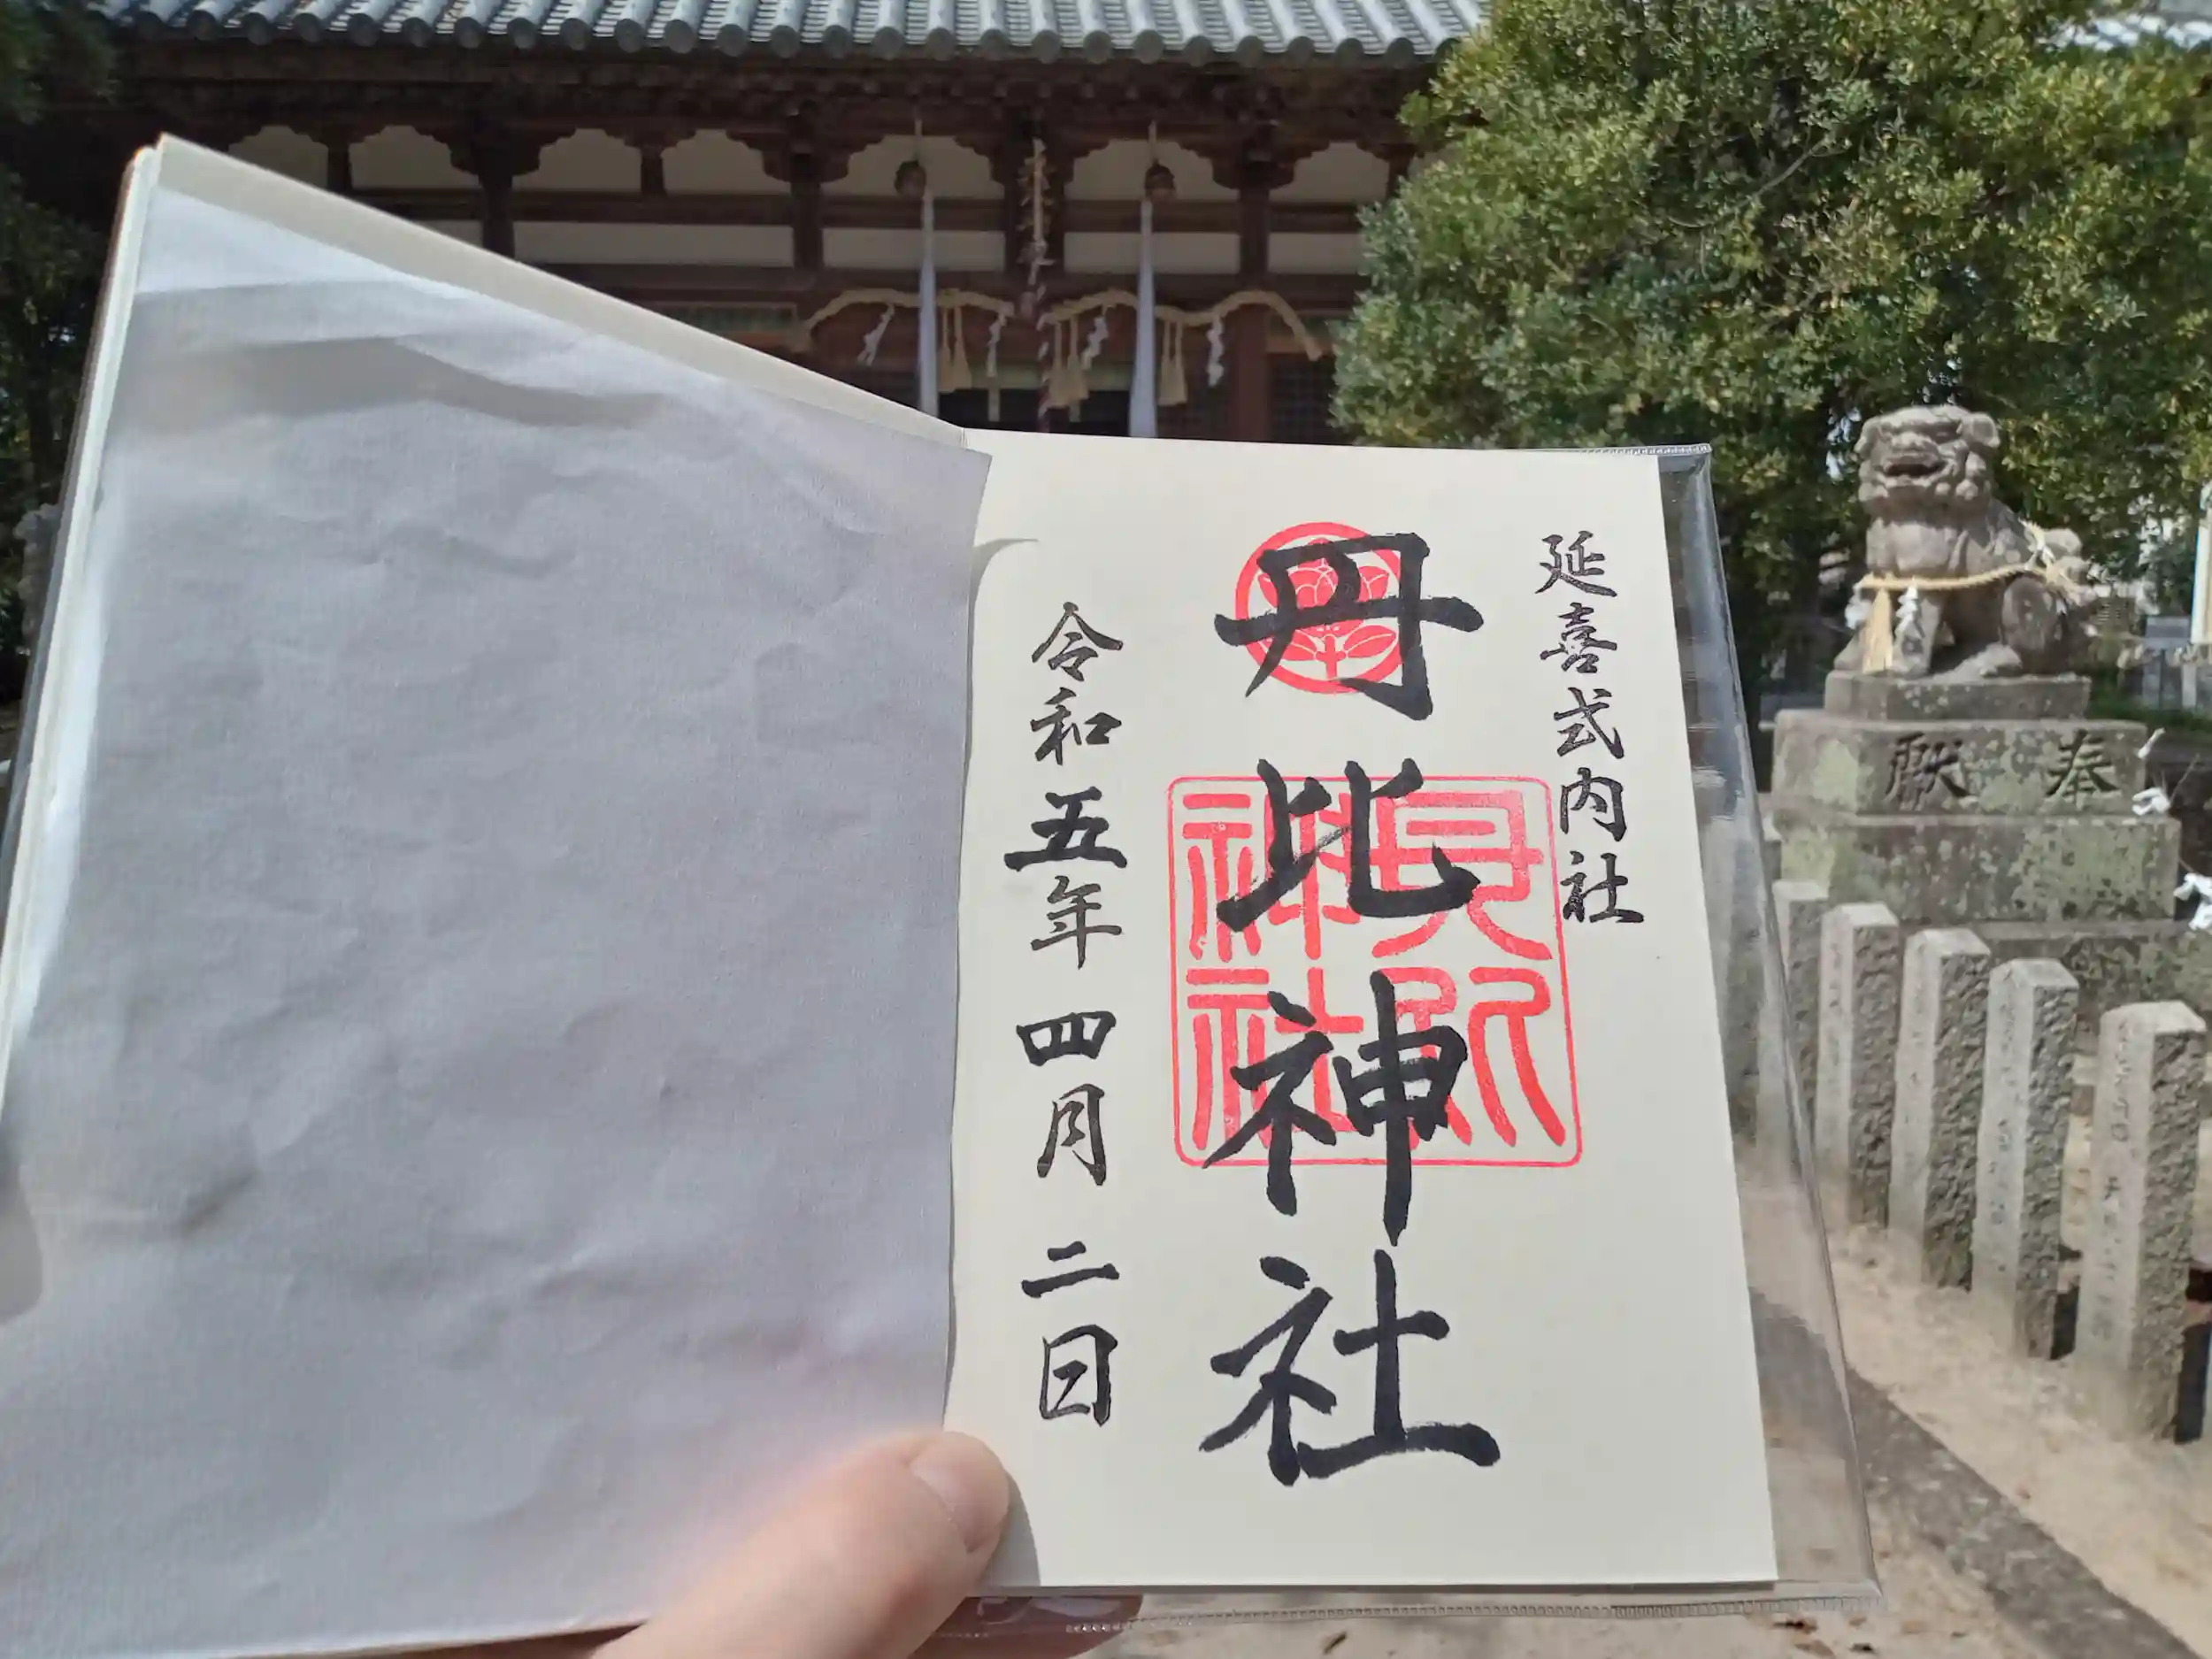 延喜式内社
丹比神社
令和五年四月二日
神社
奉献